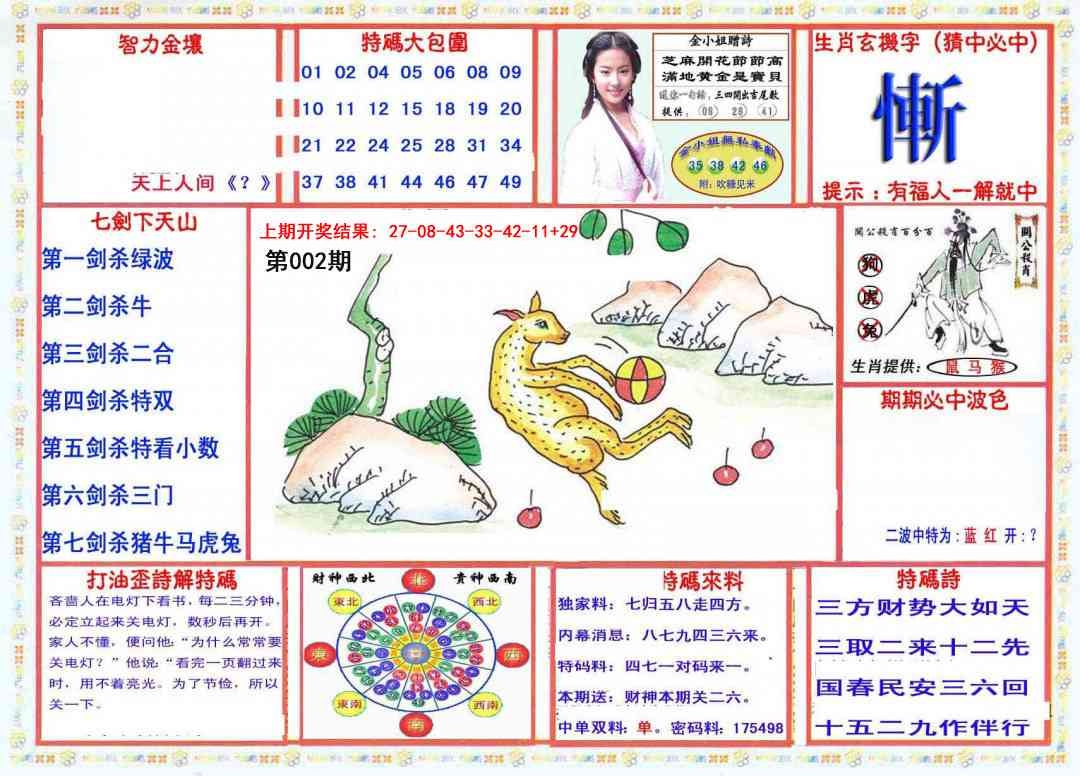 智力金壤
天上人间《？》
特碼大包圍
01 02 04 05 06 08 09
10 11 12 15 18 19 20
21 22 24 25 28 31 34
37 38 41 44 46 47 49
金小姐贈詩
芝麻開花節節高
滿地黄金是寶貝
還你一句話，三四開出吉尾數
提供：（08）（28）（41）
金小姐無私奉獻
35 38 42 46
附：吹糠见米
生肖玄機字（猜中必中）
慚
提示：有福人一解就中
七劍下天山
第一剑杀绿波
第二剑杀牛
第三剑杀二合
第四剑杀特双
第五剑杀特看小数
第六剑杀三门
第七剑杀猪牛马虎兔
上期开奖结果：27-08-43-33-42-11+29
第002期
關公殺肖百分百
關公殺肖
狗
虎
兔
生肖提供：鼠 马 猴
期期必中波色
二波中特为：蓝 红 开：？
打油歪詩解特碼
吝啬人在电灯下看书，每二三分钟，
必定立起来关电灯，数秒后再开。
家人不懂，便问他：“为什么常常要
关电灯？”他说：“看完一页翻过来
时，用不着亮光。为了节俭，所以
关一下。
财神西北 貴神西南
北
東北 西北
東 西
東南 西南
南
特碼來料
独家料：七归五八走四方。
内幕消息：八七九四三六来。
特码料：四七一对码来一。
本期送：财神本期关二六。
中单双料：单。密码料：175498
特碼詩
三方财势大如天
三取二来十二先
国春民安三六回
十五二九作伴行